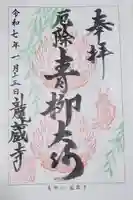 奉拝
厄除 青柳大師
令和七年一月十三日 龍蔵寺